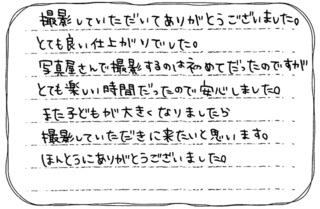 撮影していただいてありがとうございました。
とても良い仕上がりでした。
写真屋さんで撮影するのは初めてだったのですが
とても楽しい時間だったので安心しました。
また子どもが大きくなりましたら
撮影していただきに来たいと思います。
ほんとうにありがとうございました。